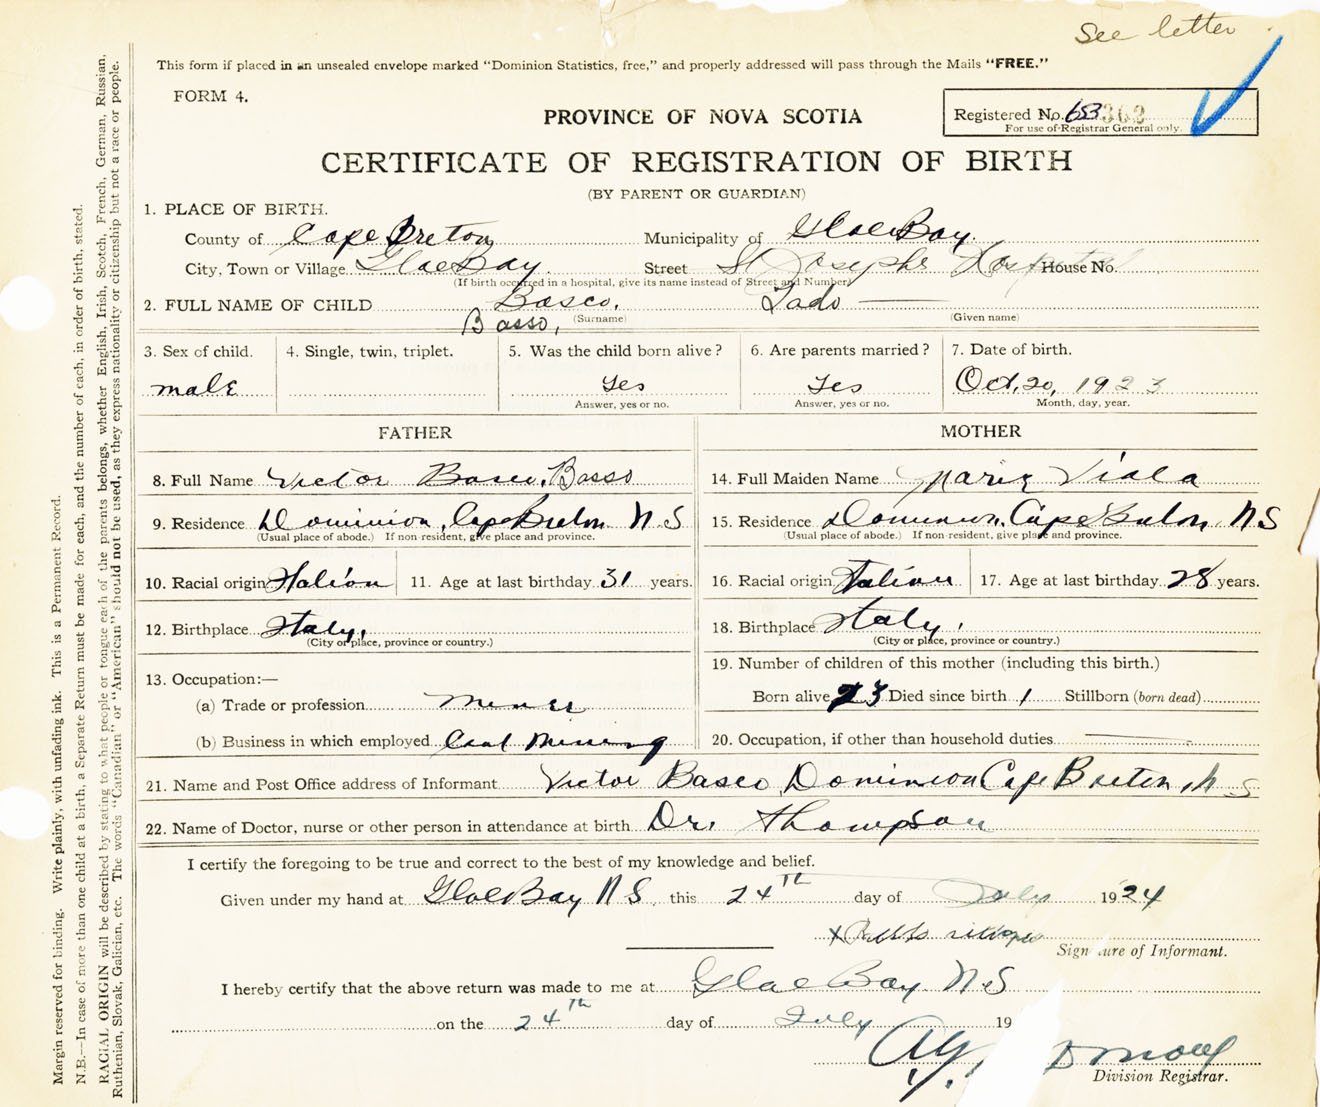 See letter
This form if placed in an unsealed envelope marked "Dominion Statistics, free," and properly addressed will pass through the Mails "FREE."
FORM 4.
PROVINCE OF NOVA SCOTIA
Registered No. 362
For use of Registrar General only.
CERTIFICATE OF REGISTRATION OF BIRTH
(BY PARENT OR GUARDIAN)
1. PLACE OF BIRTH.
County of Cape Breton Municipality of Glace Bay.
City, Town or Village Glace Bay. Street St Josephs Hospital House No.
(If birth occurred in a hospital, give its name instead of Street and Number)
2. FULL NAME OF CHILD Basco, Tado
Basso, (Surname) (Given name)
3. Sex of child. 4. Single, twin, triplet. 5. Was the child born alive? 6. Are parents married? 7. Date of birth.
male Yes Yes Oct, 20, 1923
Answer, yes or no. Answer, yes or no. Month, day, year.
FATHER MOTHER
8. Full Name Victor Basco, Basso 14. Full Maiden Name Marie Viola
9. Residence Dominion, Cape Breton N S 15. Residence Dominion, Cape Breton N S
(Usual place of abode.) If non-resident, give place and province. (Usual place of abode.) If non-resident, give place and province.
10. Racial origin Italian 11. Age at last birthday 31 years. 16. Racial origin Italian 17. Age at last birthday 28 years.
12. Birthplace Italy. 18. Birthplace Italy.
(City or place, province or country.) (City or place, province or country.)
13. Occupation:— 19. Number of children of this mother (including this birth.)
(a) Trade or profession miner Born alive 3 Died since birth 1 Stillborn (born dead)
(b) Business in which employed Coal Mining 20. Occupation, if other than household duties
21. Name and Post Office address of Informant Victor Basco, Dominion Cape Breton, N S
22. Name of Doctor, nurse or other person in attendance at birth Dr. Thompson
I certify the foregoing to be true and correct to the best of my knowledge and belief.
Given under my hand at Glace Bay N S this 24TH day of July 1924
Signature of Informant.
I hereby certify that the above return was made to me at Glace Bay N S
on the 24th day of July 19
Division Registrar.
Margin reserved for binding. Write plainly, with unfading ink. This is a Permanent Record.
N.B.—In case of more than one child at a birth, a Separate Return must be made for each, and the number of each, in order of birth, stated.
RACIAL ORIGIN will be described by stating to what people or tongue each of the parents belongs, whether English, Irish, Scotch, French, German, Russian,
Ruthenian, Slovak, Galician, etc. The words "Canadian" or "American" should not be used, as they express nationality or citizenship but not a race or people.